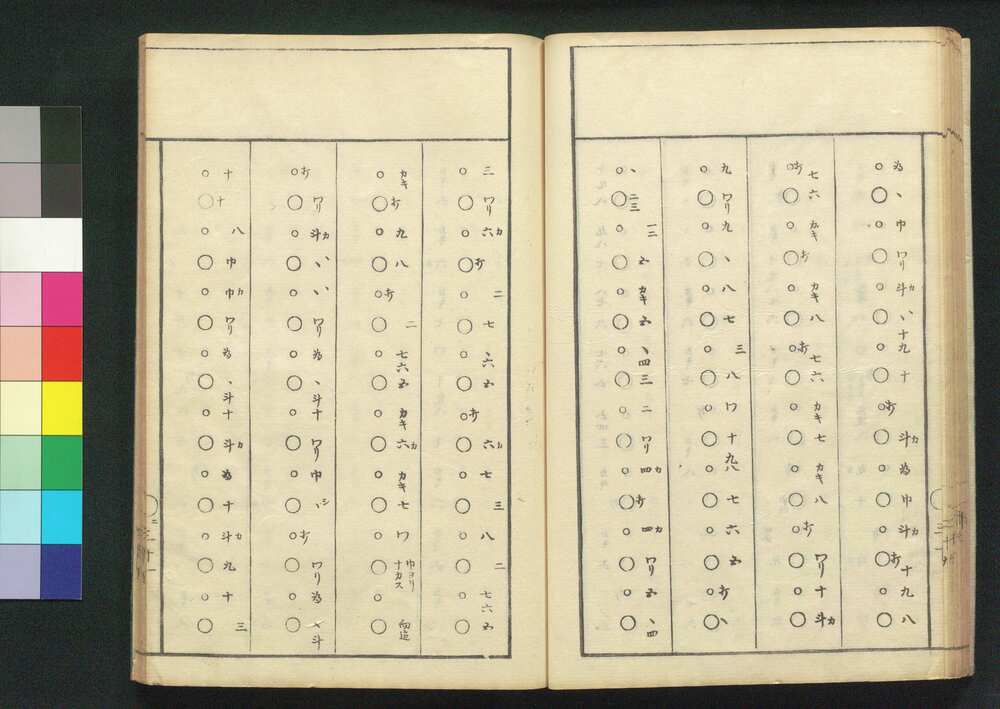 為 、 巾 ワリ 斗カ 、、 十 九 十 オ 斗カ 為 巾 斗カ オ 十 九 八
オ 七 六 カキ オ カキ 八 オ 七 六 カキ 七 カキ 八 オ ワリ 十 斗カ
九 ワリ 九 、 八 七 三 八 ワ 十 九 八 七 六 五 オ 、
、 二三 一三 五 カキ 五 、 四 三 二 ワリ 四カ オ 四カ ワリ 五 、 四
三 ワリ 六カ オ 二 七 、 六 五 オ 六カ 七 三 八 二 七 六 五
カキ オ 九 八 オ 二 七 六 五 カキ 六カ カキ 七 ワ 巾ヨリ 十カス
オ ワリ 斗カ 、、 、、 ワリ 為 、 斗 十 ワリ 巾 、シ オ ワリ 為 斗
十 十 八 巾 巾カ ワリ 為 、 斗 十 斗カ 為 十 斗カ 九 十 三